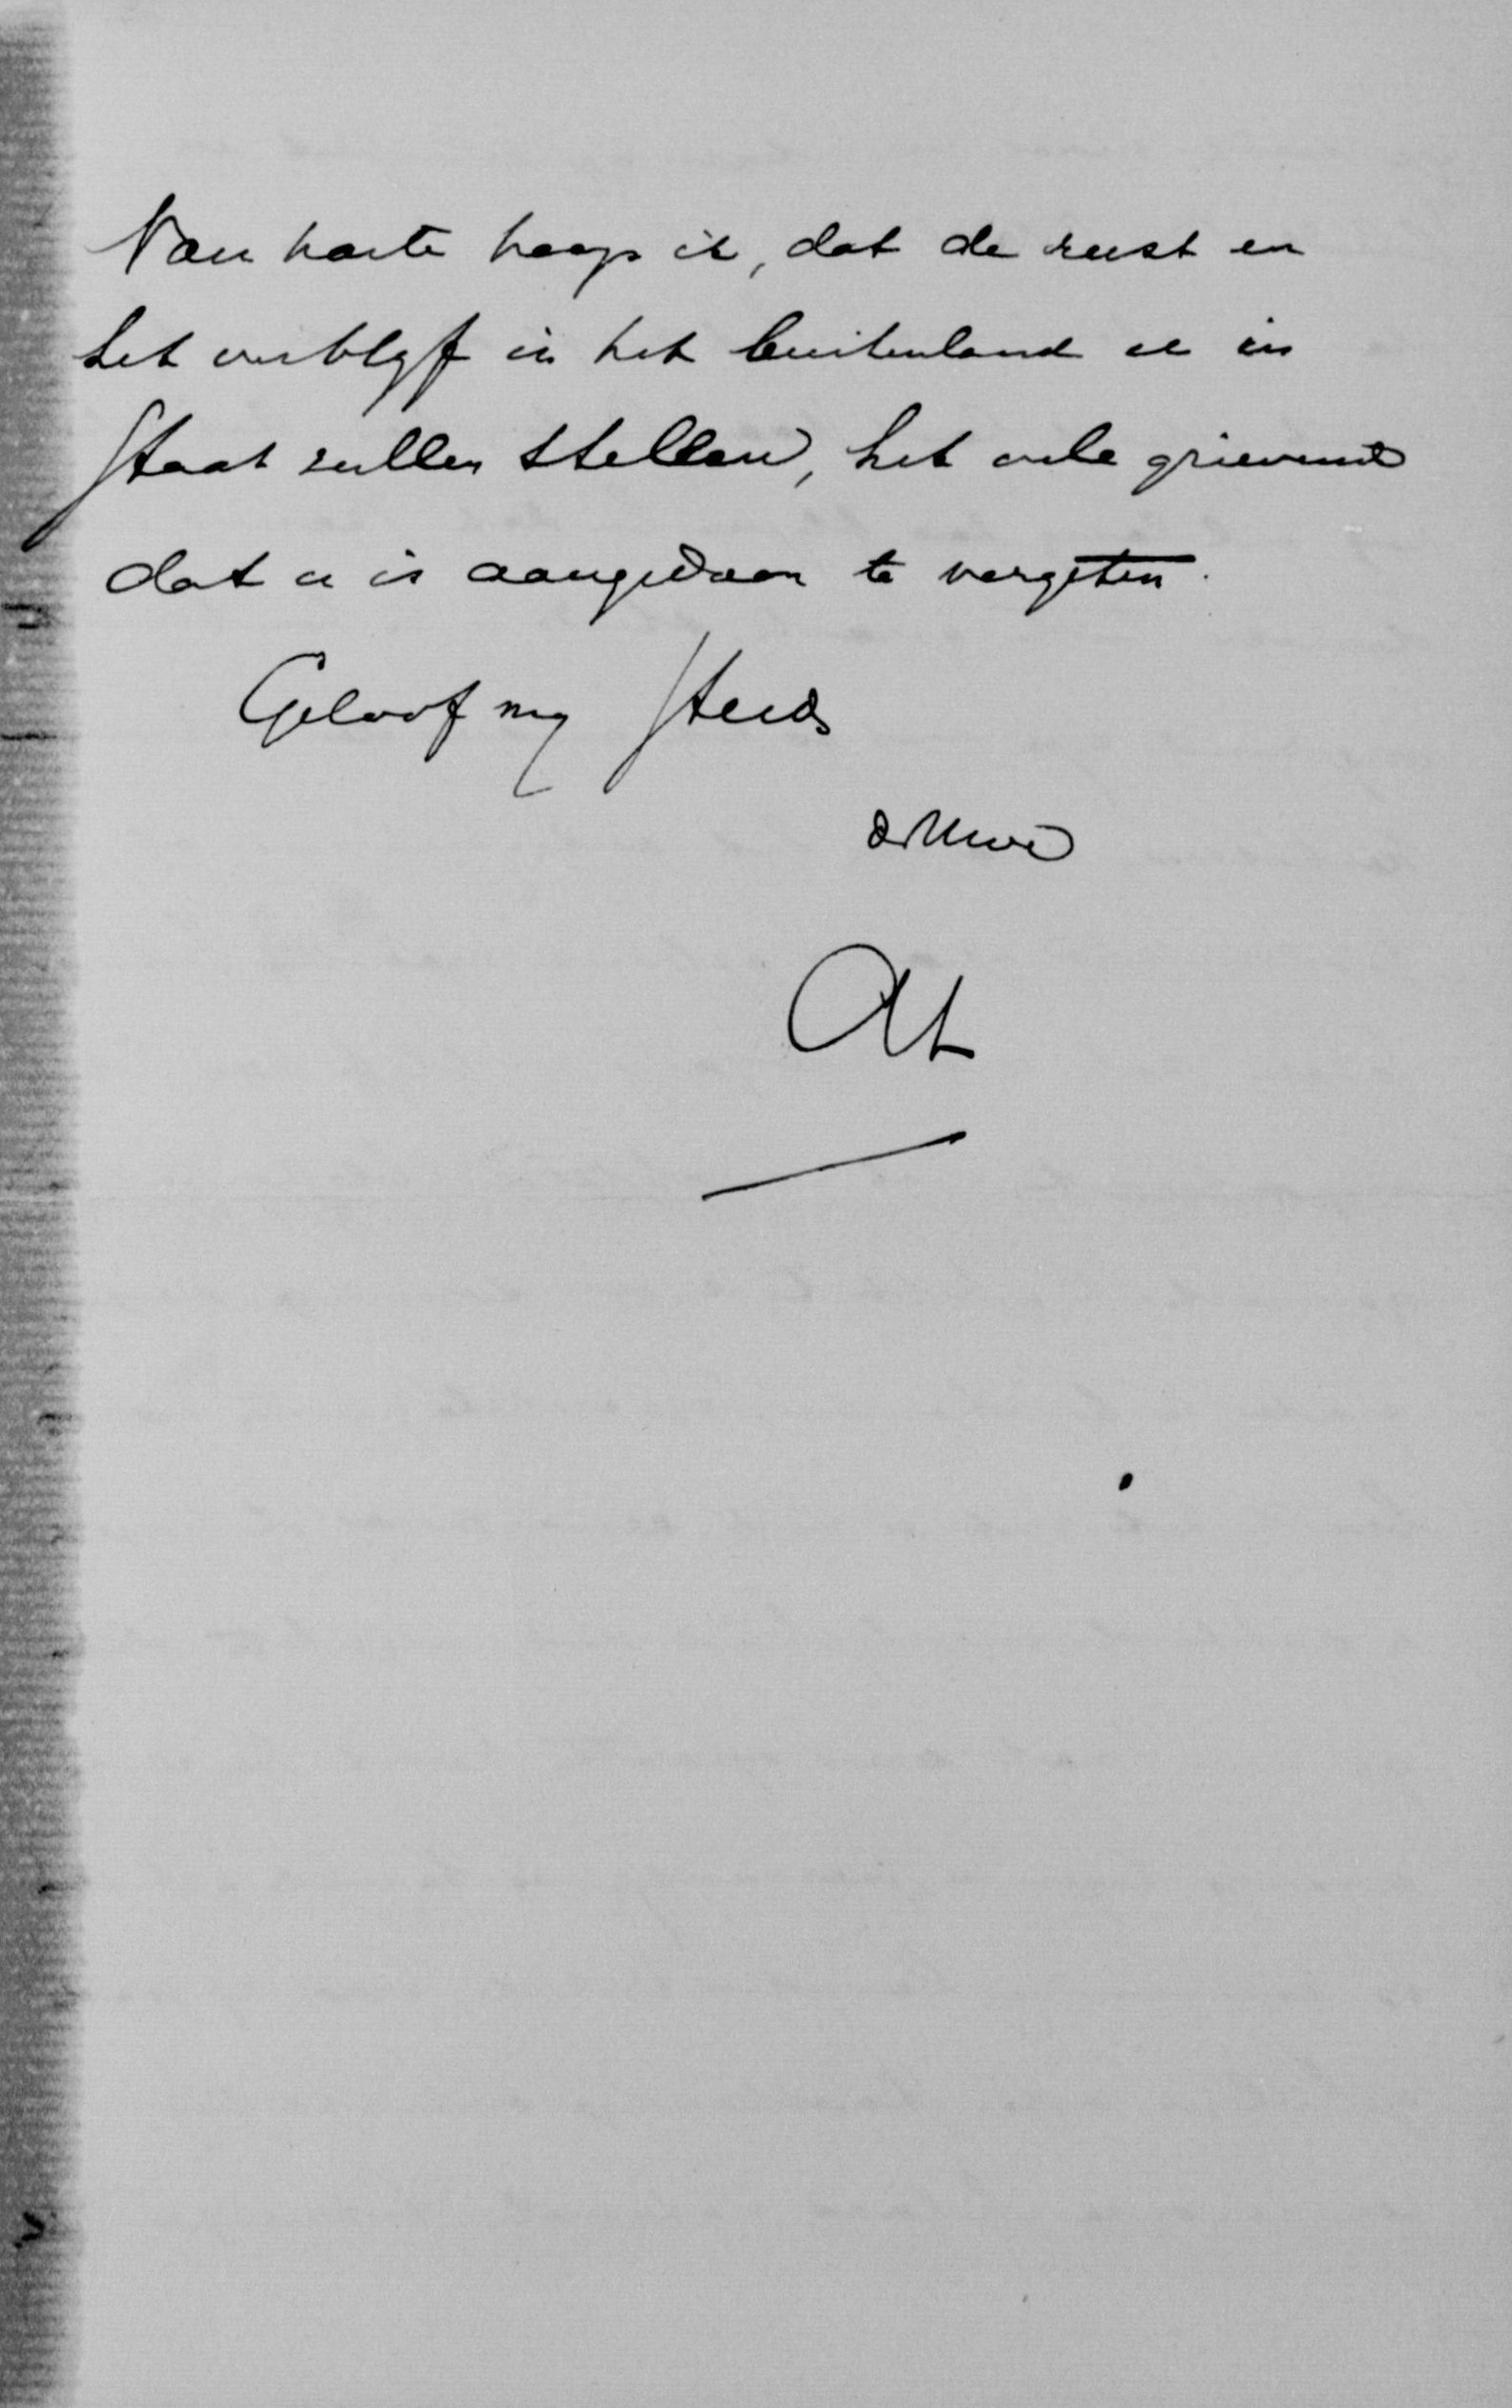 Van harte hoop ik, dat de rust en
het verblyf in het buitenland u in
staat zullen stellen, het vele grievende
dat u is aangedaan te vergeten.
Geloof my steeds
d. Uwe